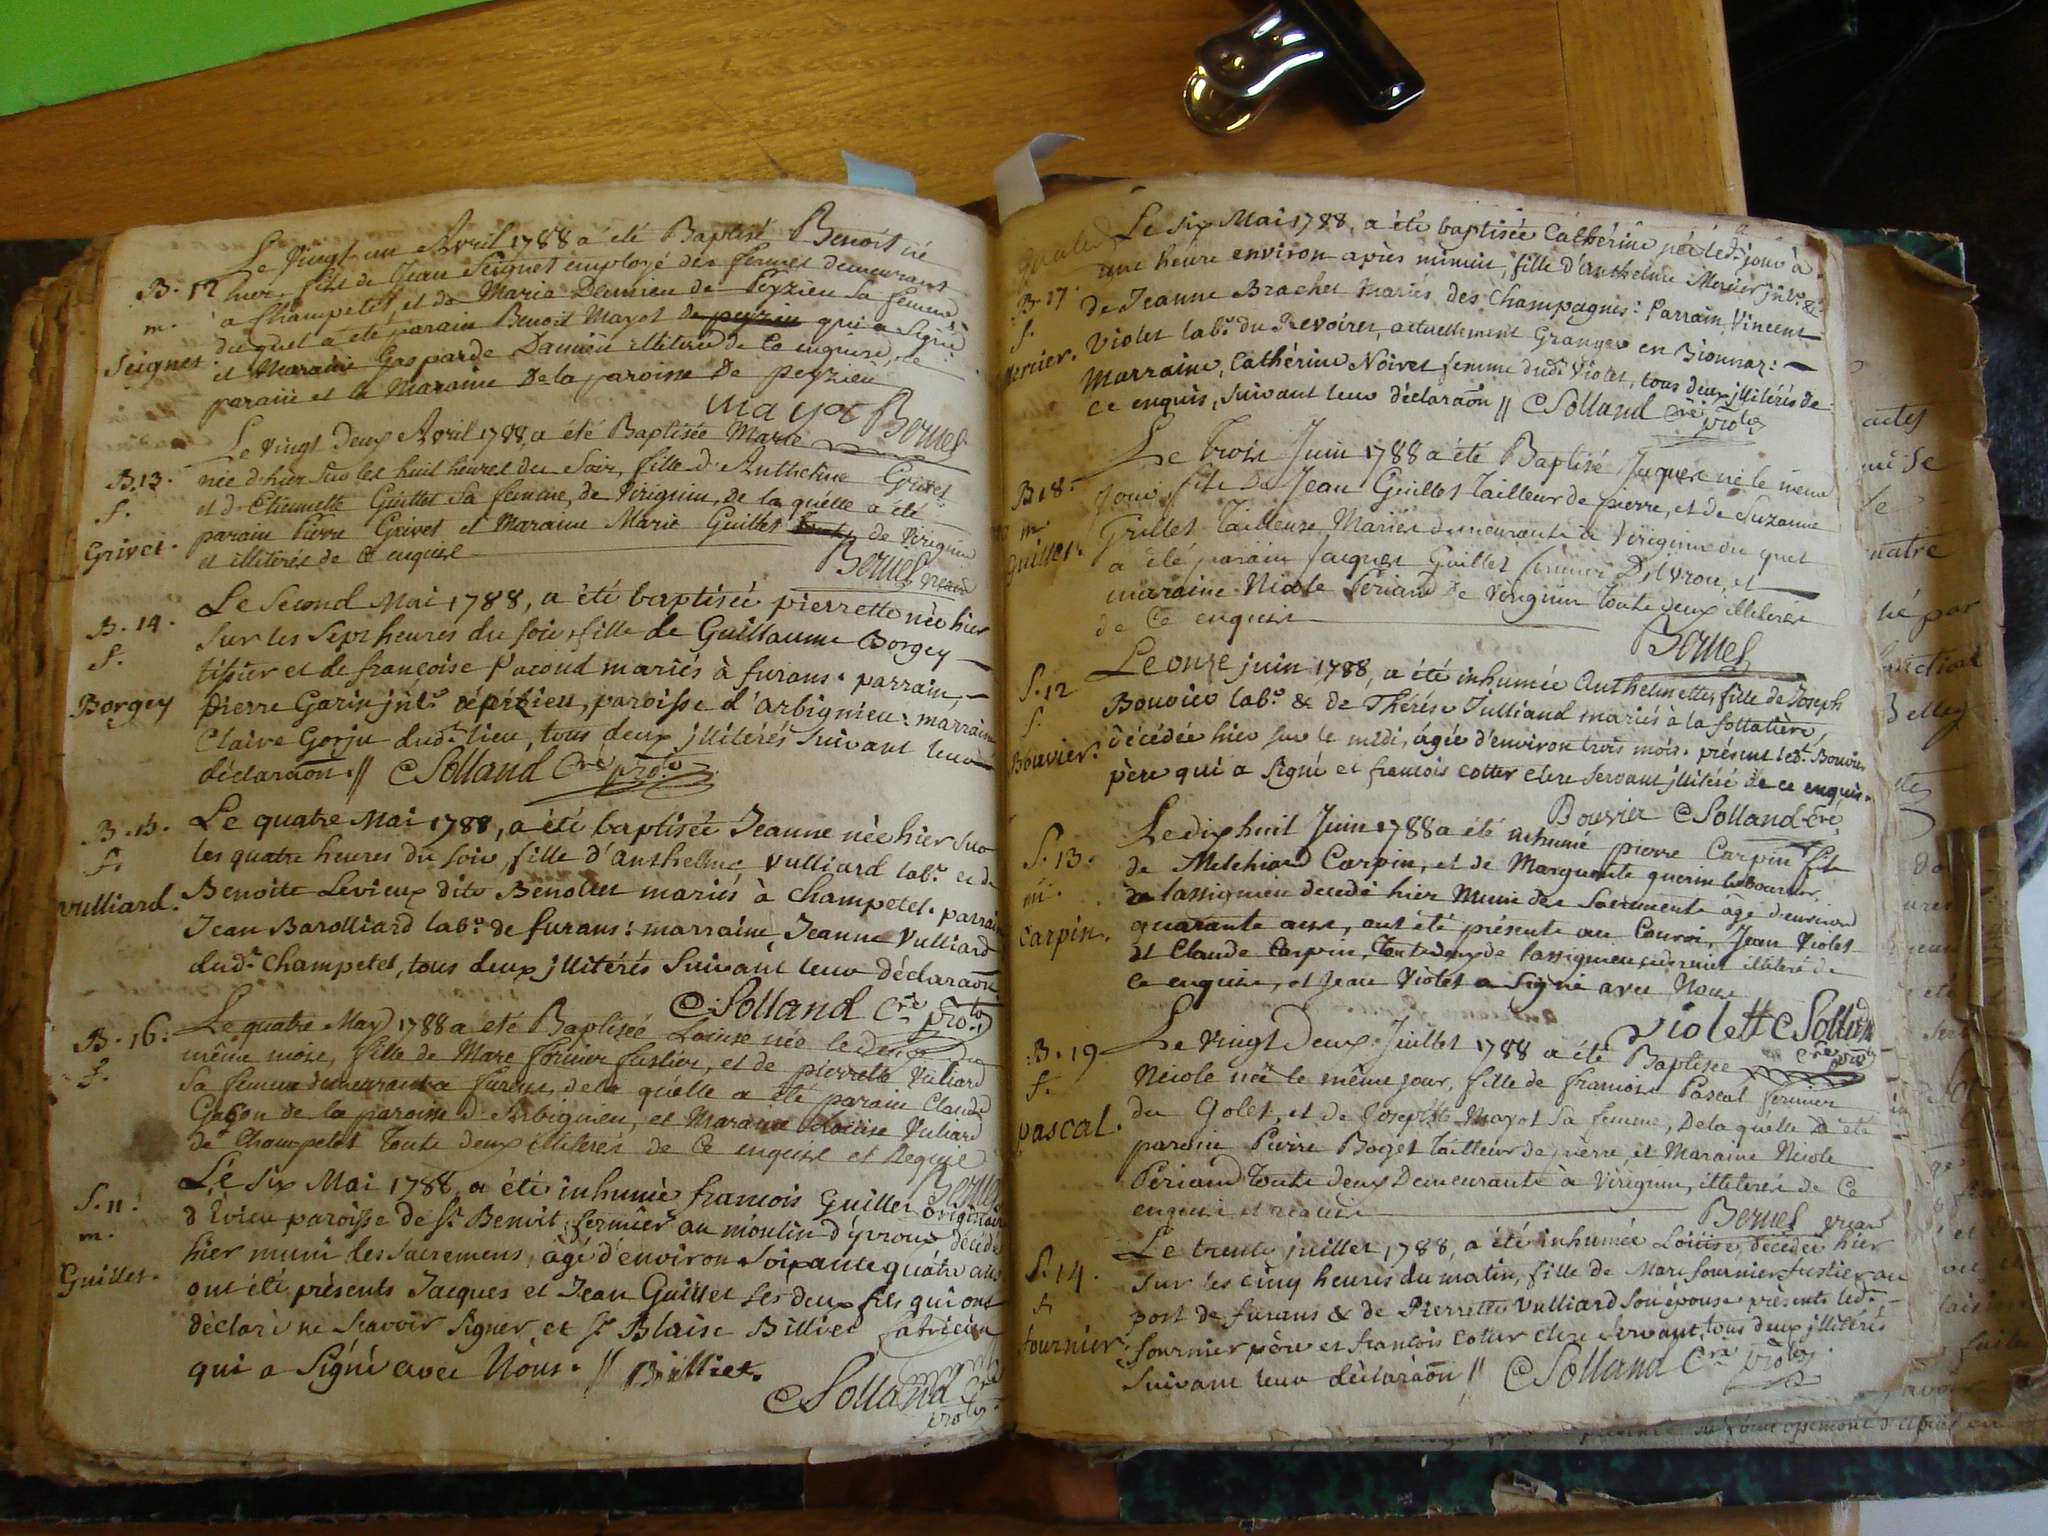 Le Vingt un Avril 1788 a été Baptisé Benoit né
B. 12 hier, fils de Jean Seignet employé des fermes demeurant
m. a Champetel, et de Marie Damien de Peyzieu sa femme
duquel a été parain Benoit Mayot de peyzieu qui a Signé
Seignet. et Maraine Gasparde Damien illiterée de Ce enquise, le
parain et la Maraine De la paroisse De peyzieu
mayot Bernel
Le Vingt Deux Avril 1788, a été Baptisée Marie
B. 13. née d'hier sur les huit heures du Soir, fille d'Anthelme Grivet
f. et d'Etiennette Guillet Sa femme, de Virignin, de la quelle a été
Grivet. parain Pierre Grivet et Maraine Marie Guillet de Virignin
et illiterés de Ce enquise
Bernel vicaire
Le Second Mai 1788, a été baptisée pierrette née hier
B. 14. Sur les Sept heures du soir, fille de Guillaume Borgey
f. tissier et de françoise pacoud mariés à furans. parrain,
Borgey pierre Garin jrlr. de peizieu, paroisse d'arbignieu: marraine
Claire Gorju dudt. lieu, tous deux jllitérés suivant leur
déclaraõn. // C Solland Cré
B. 15. Le quatre Mai 1788, a été baptisée Jeanne née hier Sur
f. les quatre heures du soir, fille d'anthelme Vulliard labr. et de
Vulliard. Benoite Levieux dite Benollet mariés à Champetel. parrain
Jean Barolliard labr. de furans: marraine, Jeanne Vulliard
dudt. Champetel, tous deux jllitérés Suivant leur Déclaraõn
C. Solland Cré
B. 16. Le quatre May 1788 a été Baptisée Louise née le Deux du
f. même mois, fille de Marc fornier fustier, et de pierrette Vulliard
Sa femme demeurant a furans, de la quelle a été parain Claude
Gabon de la paroisse d'Arbignieu, et Maraine Louise Vuliard
de Champetel toute deux illiterés de Ce enquise et Requise
Bernel
Le Six Mai 1788, a été inhumé francois Guillet originaire
S. 11. d'Evieu paroisse de st. Benoit, fermier au moulin d'yvroux décédé
m. hier muni des sacremens, âgé d'environ Soixante quatre ans
Guillet. ont été présents Jacques et Jean Guillet Ses deux fils qui ont
déclaré ne Scavoir Signer, et sr. Blaise Billiet
qui a Signé avec Nous. // Billiet.
C Solland Cré
Le six Mai 1788, a été baptisée Cathérine née led. jour à
B. 17. une heure environ après minuit, fille d'anthelme Mercier jrlr. &
f. de Jeanne Brachet mariés des Champagnes: Parrain, Vincent
Mercier. Violet labr. du Revoiret, actuellement Granger en Bionnaz:
Marraine, Cathérine Noiret femme dudt. Violet, tous deux jllitérés de
ce enquis, suivant leur déclaraõn // C Solland Cré
Le Trois Juin 1788 a été Baptisé Jaques né le même
B 18. jour, fils De Jean Guillet tailleur de pierre, et de Suzanne
m. Grillet tailleuse, Mariés demeurants à Virignin du quel
Guillet. a été parain Jacques Guillet fermier D'ivrou, et
maraine Nicole Périand De Virignin toute deux illiterés
de Ce enquise
Bernel
Le onze juin 1788, a été inhumée anthelmette, fille de Joseph
S. 12 Bouvier labr. & de Thérése Julliand mariés à la sottatière,
f. Décédée hier sur le midi, âgée d'environ trois mois. présent led. Bouvier
Bouvier. père qui a Signé et francois cotter clerc servant jllitéré de ce enquis.
Bouvier C Solland Cré
Le dix huit Juin 1788 a été inhumé pierre Carpin fils
S. 13. de Melchiord Carpin, et de Marguerite
m. de lassignieu décédé hier Muni des Sacrements âgé d'environ
Carpin. quarante ans, ont été présents au Convoi, Jean Violet
et Claude Carpin, tout deux de lassignieu, ce dernier illiteré de
Ce enquise, et Jean Violet a Signé avec Nous
Violett C Solland
Le Vingt Deux Juillet 1788 a été Baptisée
B. 19 Nicole née le même jour, fille de francois Pascal fermier
f. du Golet, et de Josephte Mayot Sa femme, De la quelle a été
pascal. parain Pierre Bogét tailleur de pierre, et Maraine Nicole
Périand toute deux Demeurants à Virignin, illiterés de Ce
enquise et requise
Bernel vicaire
Le trente juillet 1788, a été inhumée Louise décédée hier
S. 14. Sur les cinq heures du matin, fille de Marc fournier fustier au
f. port de furans & de Pierrette Vulliard Son épouse. présents led.
fournier. fournier père et francois cotter clerc Servant, tous deux jllitérés
Suivant leur déclaraõn // C Solland Cré